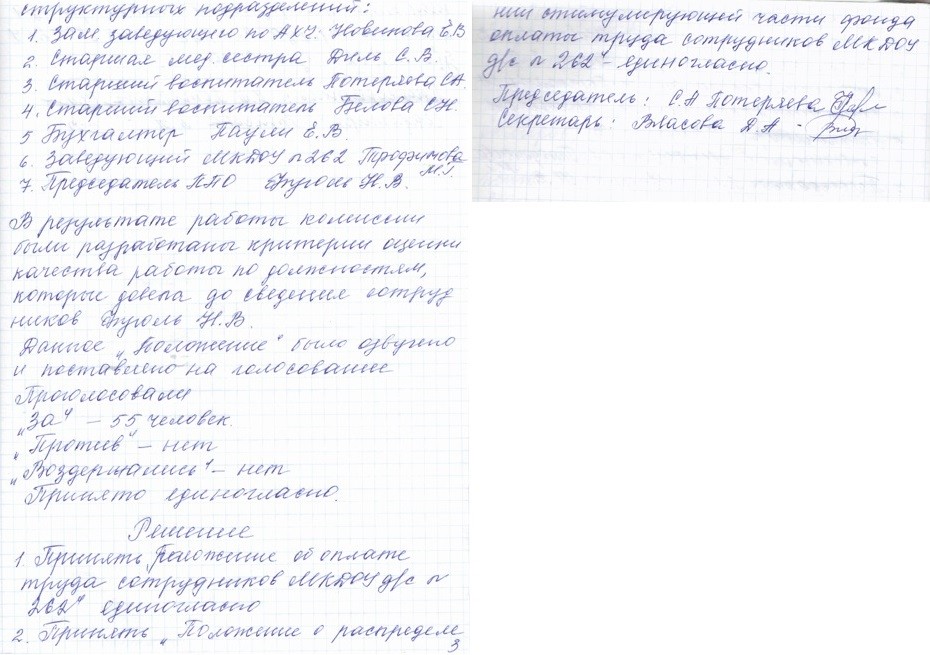 структурных подразделений:
1. Зам. заведующего по АХЧ Новикова Е.В
2. Старшая мед. сестра Диль С.В.
3. Старший воспитатель Потеряева СА.
4. Старший воспитатель Белова С.Н.
5 Бухгалтер Паули Е.В.
6. Заведующий МКДОУ №262 Трофимова
М.Г.
7. Председатель ППО Н.В.
В результате работы комиссии
были разработаны критерии оценки
качества работы по должностям,
которые довела до сведения сотруд
ников Н.В.
Данное „Положение" было озвучено
и поставлено на голосование
Проголосовали
„За" – 55 человек.
„Против" – нет
„Воздержались" – нет
Принято единогласно.
Решение
1. Принять „Положение об оплате
труда сотрудников МКДОУ д/с №
262" единогласно
2. Принять „Положение о распределе
3
нии стимулирующей части фонда
оплаты труда сотрудников МКДОУ
д/с № 262 – единогласно.
Председатель: С.А Потеряева
Секретарь: Власова Д.А –